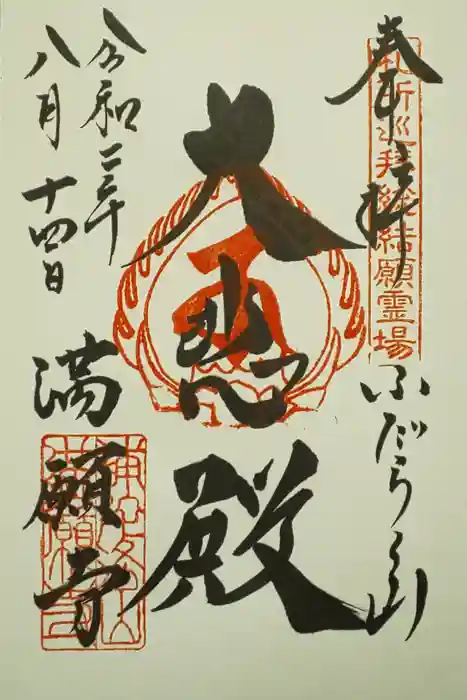 奉拝
札所巡拝総結願霊場
ふだらく山
大悲殿
令和二年
八月十四日
満願寺